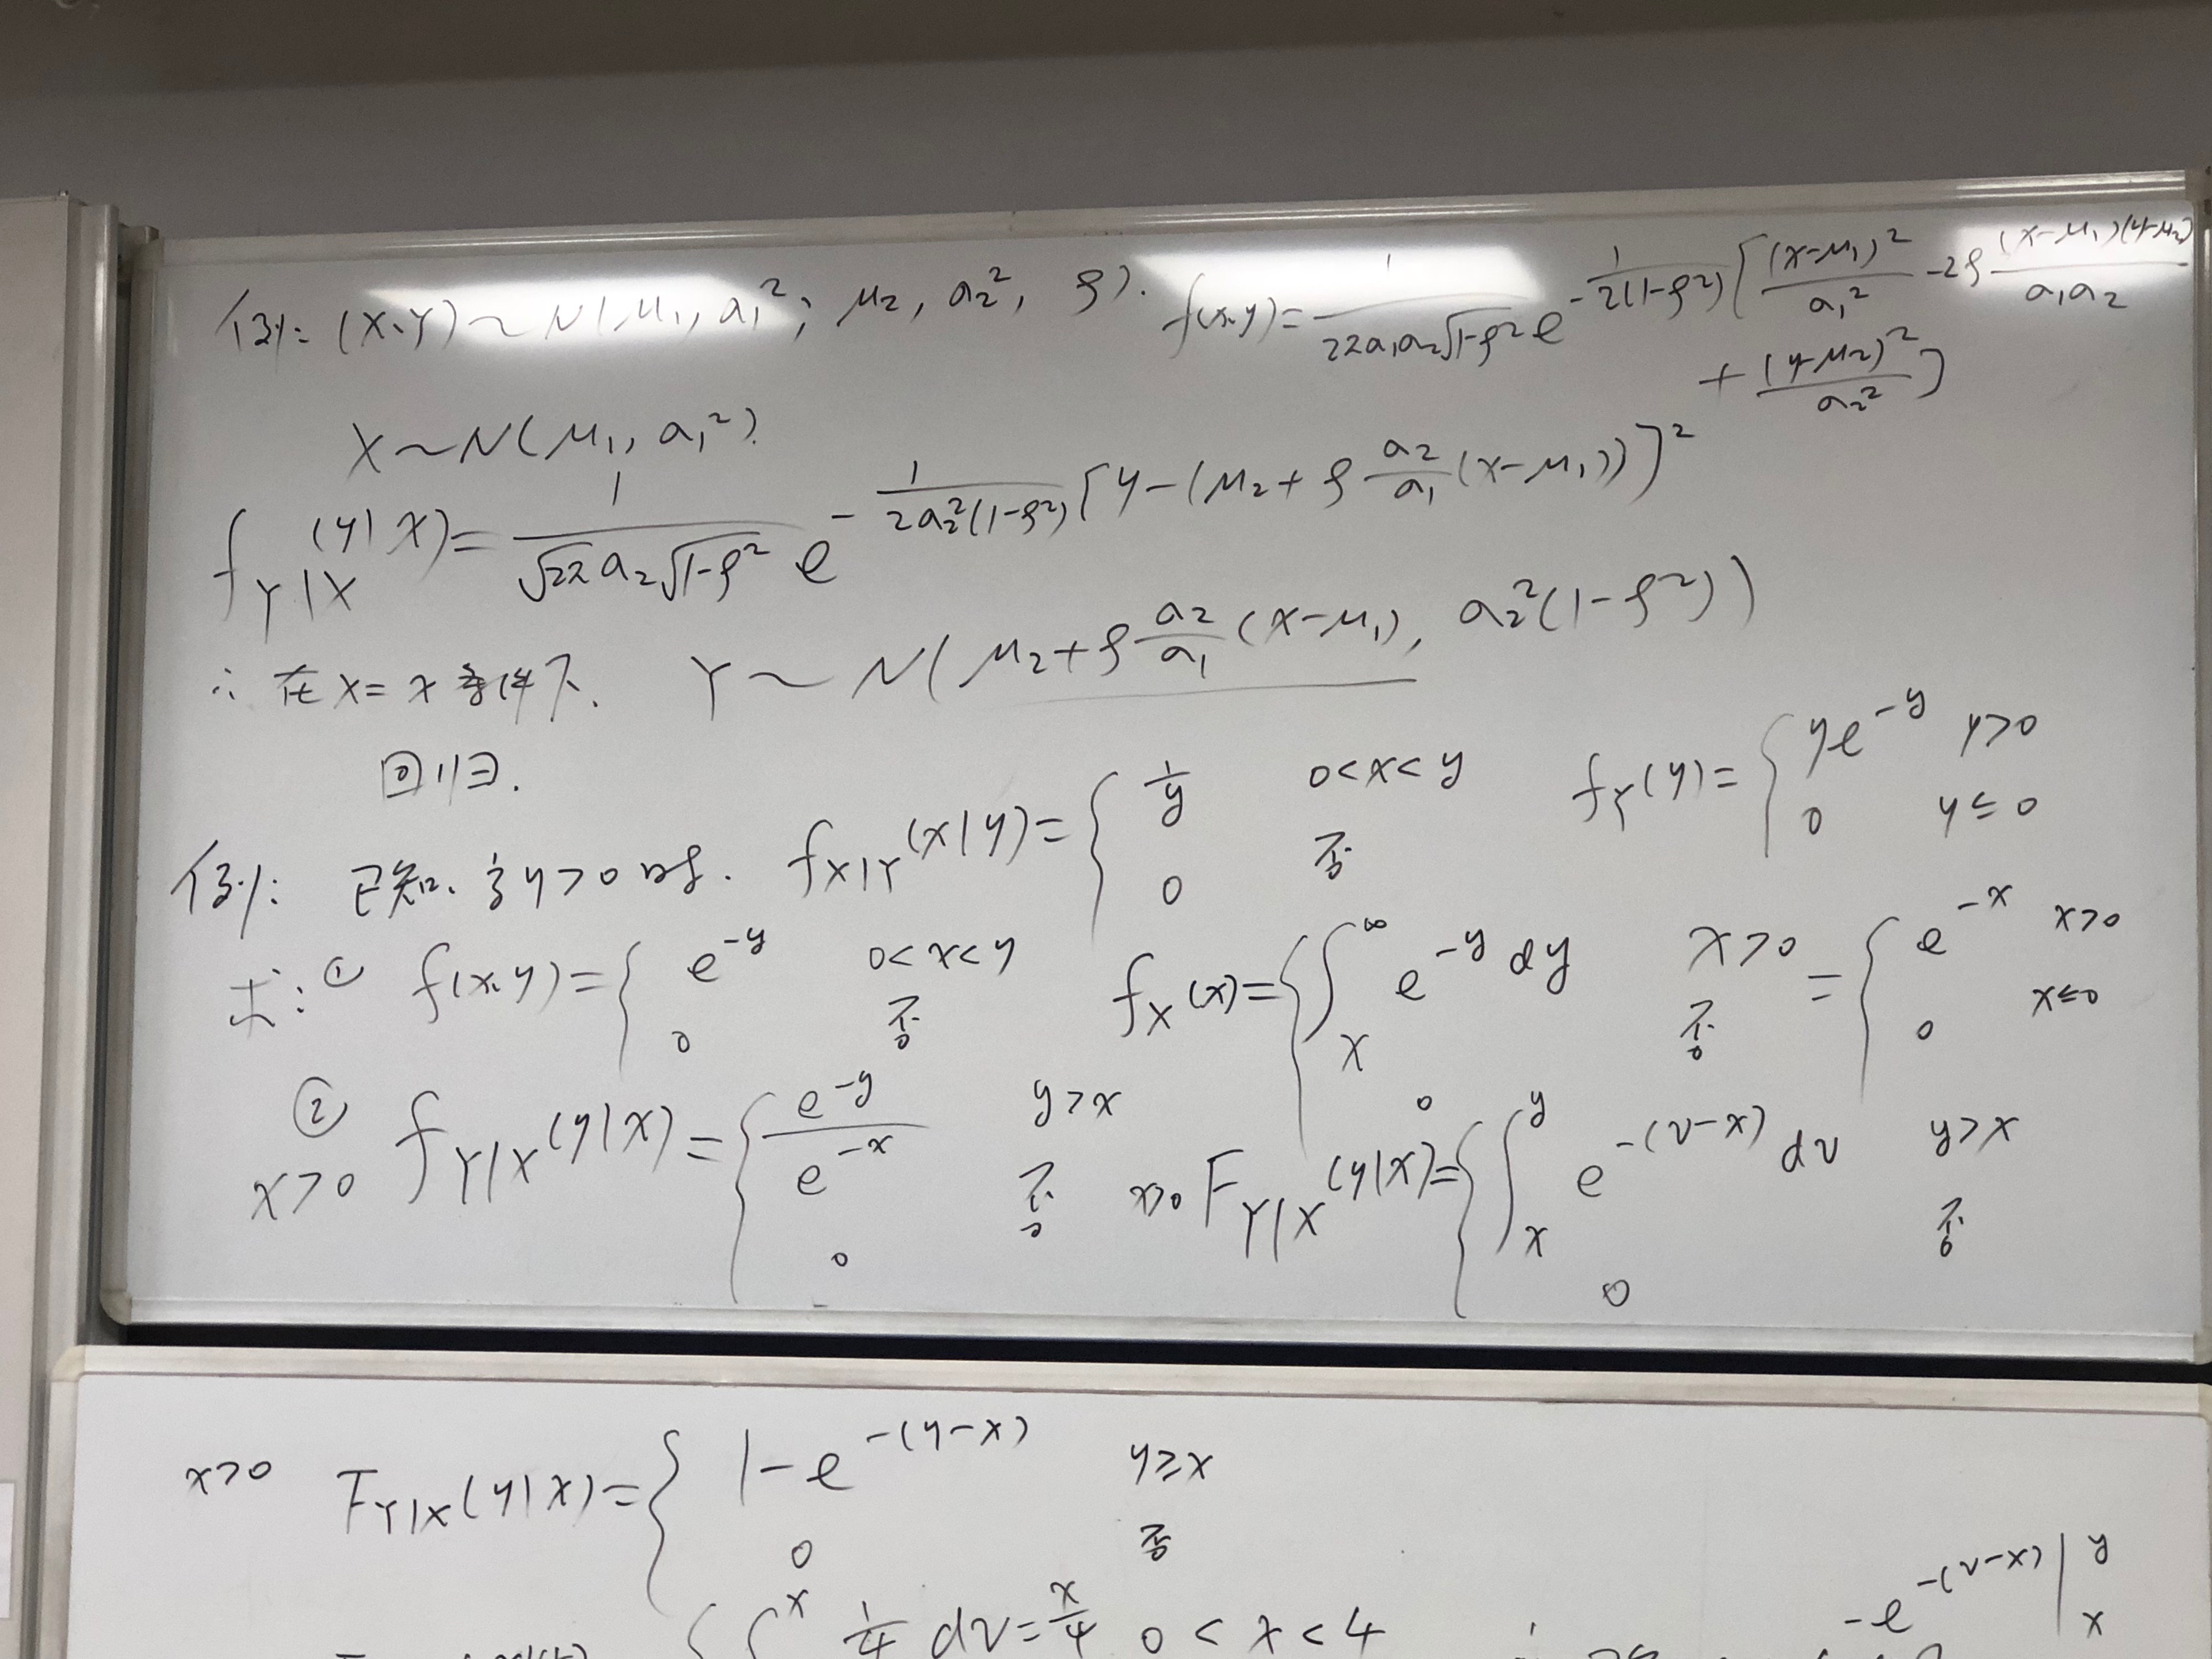 例: (X,Y)~N(μ₁, a₁²; μ₂, a₂², ρ). f(x,y)= 1/(2πa₁a₂√(1-ρ²)) e^{-1/(2(1-ρ²)) [(x-μ₁)²/a₁² -2ρ (x-μ₁)(y-μ₂)/(a₁a₂)
+ (y-μ₂)²/a₂²]}
X~N(μ₁, a₁²).
f_{Y|X}(y|x)= 1/(√2π a₂√(1-ρ²)) e^{-1/(2a₂²(1-ρ²)) [y-(μ₂+ρ a₂/a₁ (x-μ₁))]²}
∴ 在X=x条件下. Y~N(μ₂+ρ a₂/a₁ (x-μ₁), a₂²(1-ρ²))
回归.
例: 已知, 当y>0时. f_{X|Y}(x|y)={ 1/y 0<x<y ; 0 否 f_Y(y)={ ye^{-y} y>0 ; 0 y≤0
求: ① f(x,y)={ e^{-y} 0<x<y ; 0 否 f_X(x)={ ∫_x^∞ e^{-y}dy x>0 ; 0 否 ={ e^{-x} x>0 ; 0 x≤0
② x>0 f_{Y|X}(y|x)={ e^{-y}/e^{-x} y>x ; 0 否 x>0 F_{Y|X}(y|x)={ ∫_x^y e^{-(v-x)}dv y>x ; 0 否
x>0 F_{Y|X}(y|x)={ 1-e^{-(y-x)} y≥x ; 0 否
-e^{-(v-x)}|_x^y
{ ∫^x 1/4 dv= x/4 0<x<4